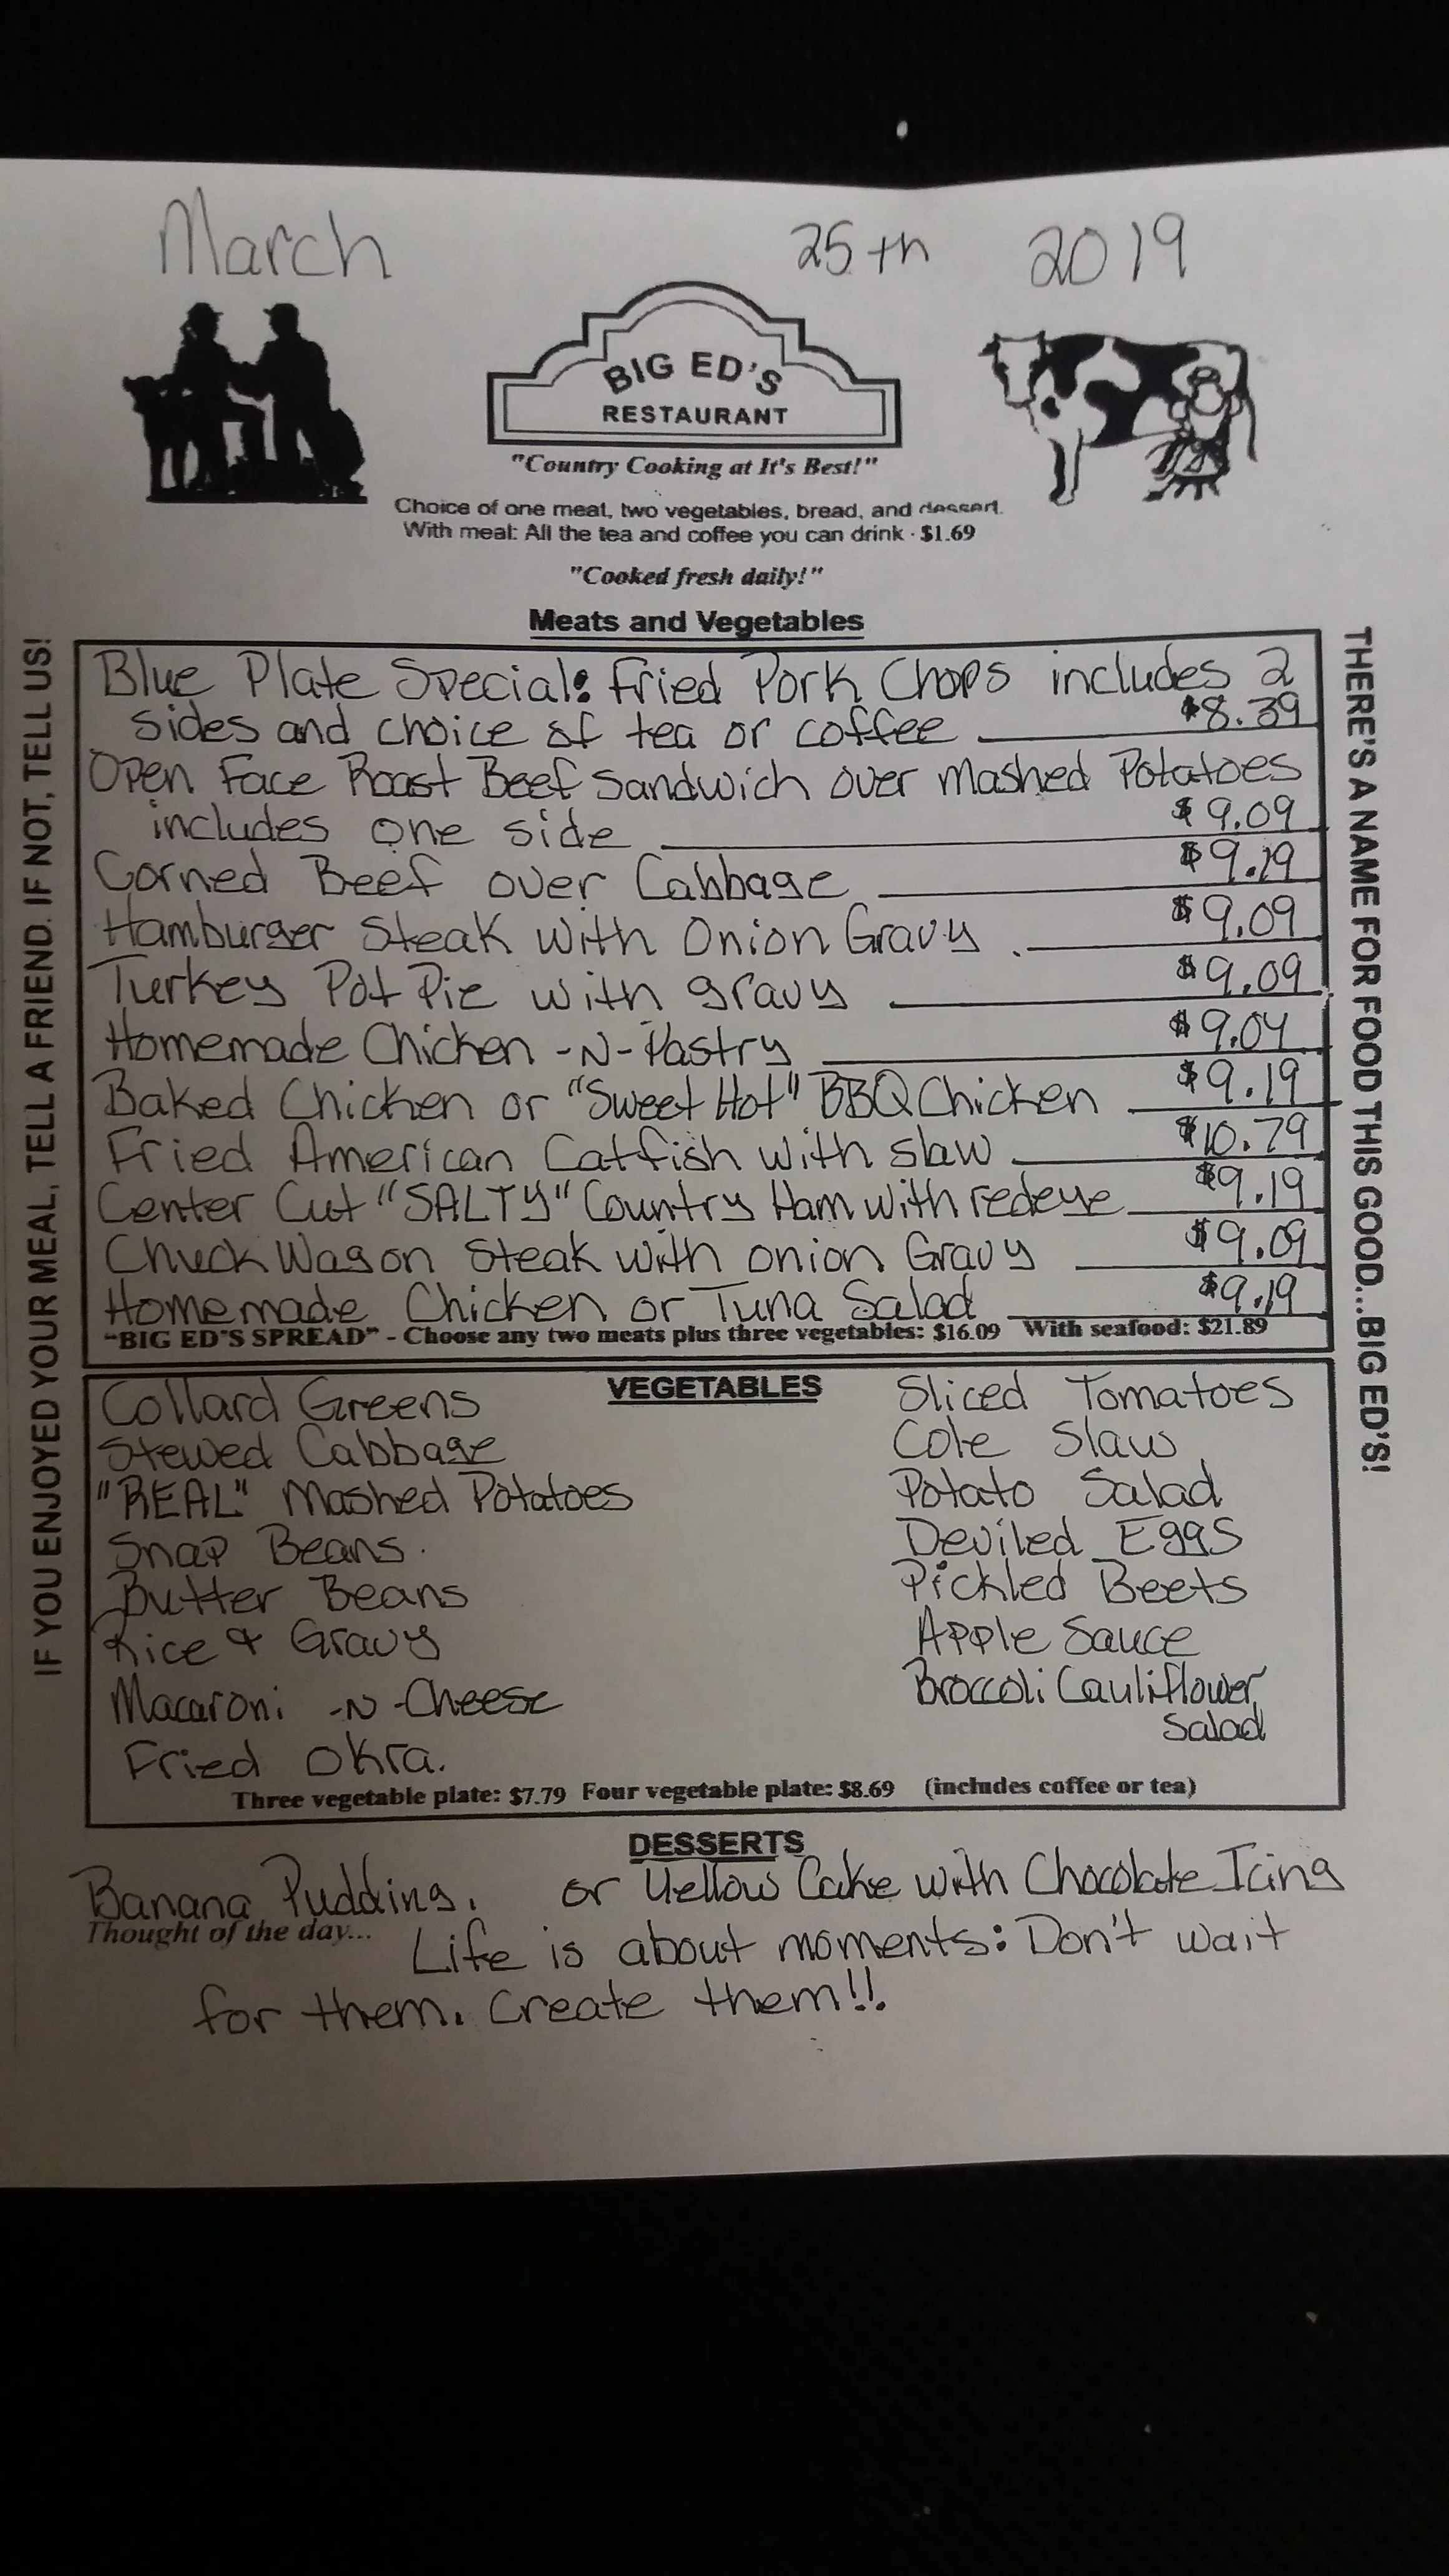 March 25th 2019
BIG ED'S
RESTAURANT
"Country Cooking at It's Best!"
Choice of one meat, two vegetables, bread, and dessert.
With meal: All the tea and coffee you can drink · $1.69
"Cooked fresh daily!"
Meats and Vegetables
IF YOU ENJOYED YOUR MEAL, TELL A FRIEND. IF NOT, TELL US!
Blue Plate Special: Fried Pork Chops includes 2
sides and choice of tea or coffee $8.39
Open Face Roast Beef Sandwich over Mashed Potatoes
includes one side $9.09
Corned Beef over Cabbage $9.19
Hamburger Steak with Onion Gravy $9.09
Turkey Pot Pie with gravy $9.09
Homemade Chicken -N- Pastry $9.04
Baked Chicken or "Sweet Hot" BBQ Chicken $9.19
Fried American Catfish with slaw $10.79
Center Cut "SALTY" Country Ham with redeye $9.19
Chuck Wagon Steak with onion Gravy $9.09
Homemade Chicken or Tuna Salad $9.19
"BIG ED'S SPREAD" - Choose any two meats plus three vegetables: $16.09 With seafood: $21.89
THERE'S A NAME FOR FOOD THIS GOOD...BIG ED'S!
VEGETABLES
Collard Greens
Stewed Cabbage
"REAL" Mashed Potatoes
Snap Beans.
Butter Beans
Rice & Gravy
Macaroni -N-Cheese
Fried Okra.
Sliced Tomatoes
Cole Slaw
Potato Salad
Deviled Eggs
Pickled Beets
Apple Sauce
Broccoli Cauliflower
Salad
Three vegetable plate: $7.79 Four vegetable plate: $8.69 (includes coffee or tea)
DESSERTS
Banana Pudding. or Yellow Cake with Chocolate Icing
Thought of the day... Life is about moments: Don't wait
for them. Create them!!